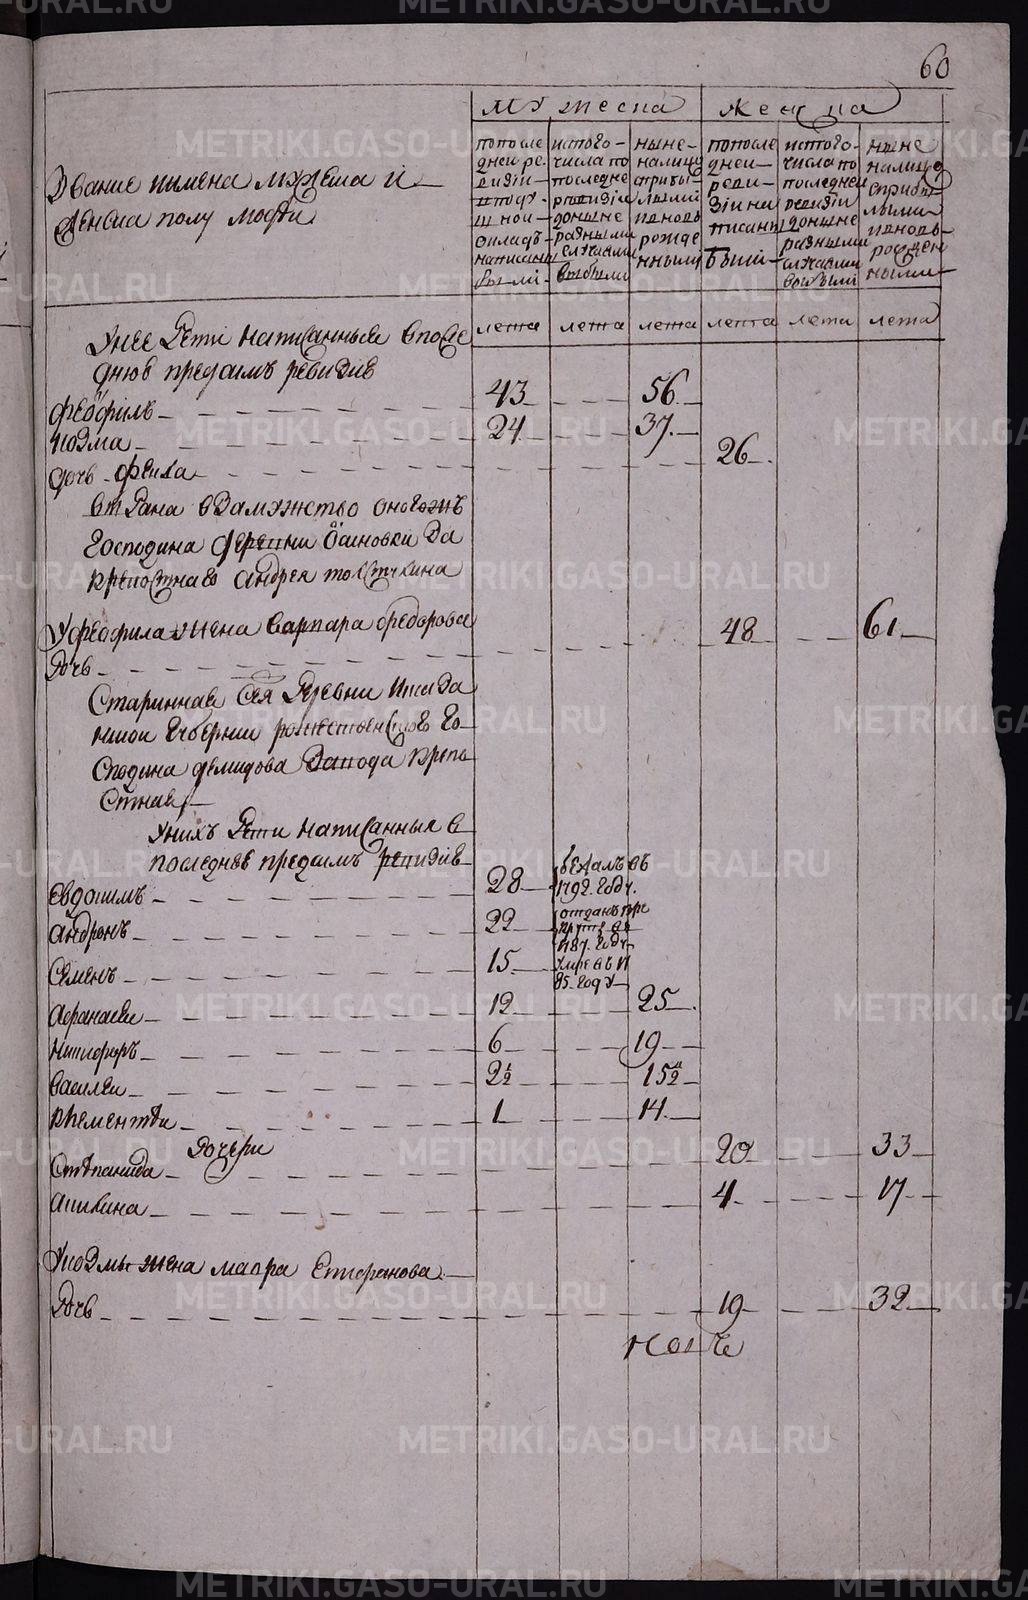 60
мужеска
женска
Звание иимена мужеска и
женска полу людеи
попосле
дней ре
визіи
написаны
были
истого
числа по
последне
ревизіи
доныне
разными
случаями
выбыло
ныне
налицо
сприбы
лыми
ивновь
рожде
нными
попосле
дней
реви
зіи на
писаны
были
истого
числа по
последней
ревизіи
доныне
разными
случаями
выбыли
ныне
налицо
сприбы
лыми
ивновь
рожден
ными
лета лета лета лета лета лета
Унее дети написанныя впосле
днюю предсимъ ревизию
Феофилъ 43 56
Козма 24 37
дочь Фекла 26
отдана взамужство оногожъ
Господина деревни
крепостнаго андрея толстикина
Уфеофила жена варвара федорова
дочь 48 61
Стариннае сея деревни
Губернии рожественскова го
сподина демидова завода крепо
стнае
Унихъ дети написанныя в
последнее предсимъ ревизие
Евдокимъ 28 бежалъ въ
1792 году
андронъ 22 отданъ вре
круты в
1787 году
Семенъ 15 умре въ 17
85 году
Афанасеи 12 25
Никифоръ 6 19
василеи 2½ 15½
Клементеи 1 14
дочери
Степанида 20 33
акилина 4 17
Укозмы жена мавра Стефанова
дочь 19 32